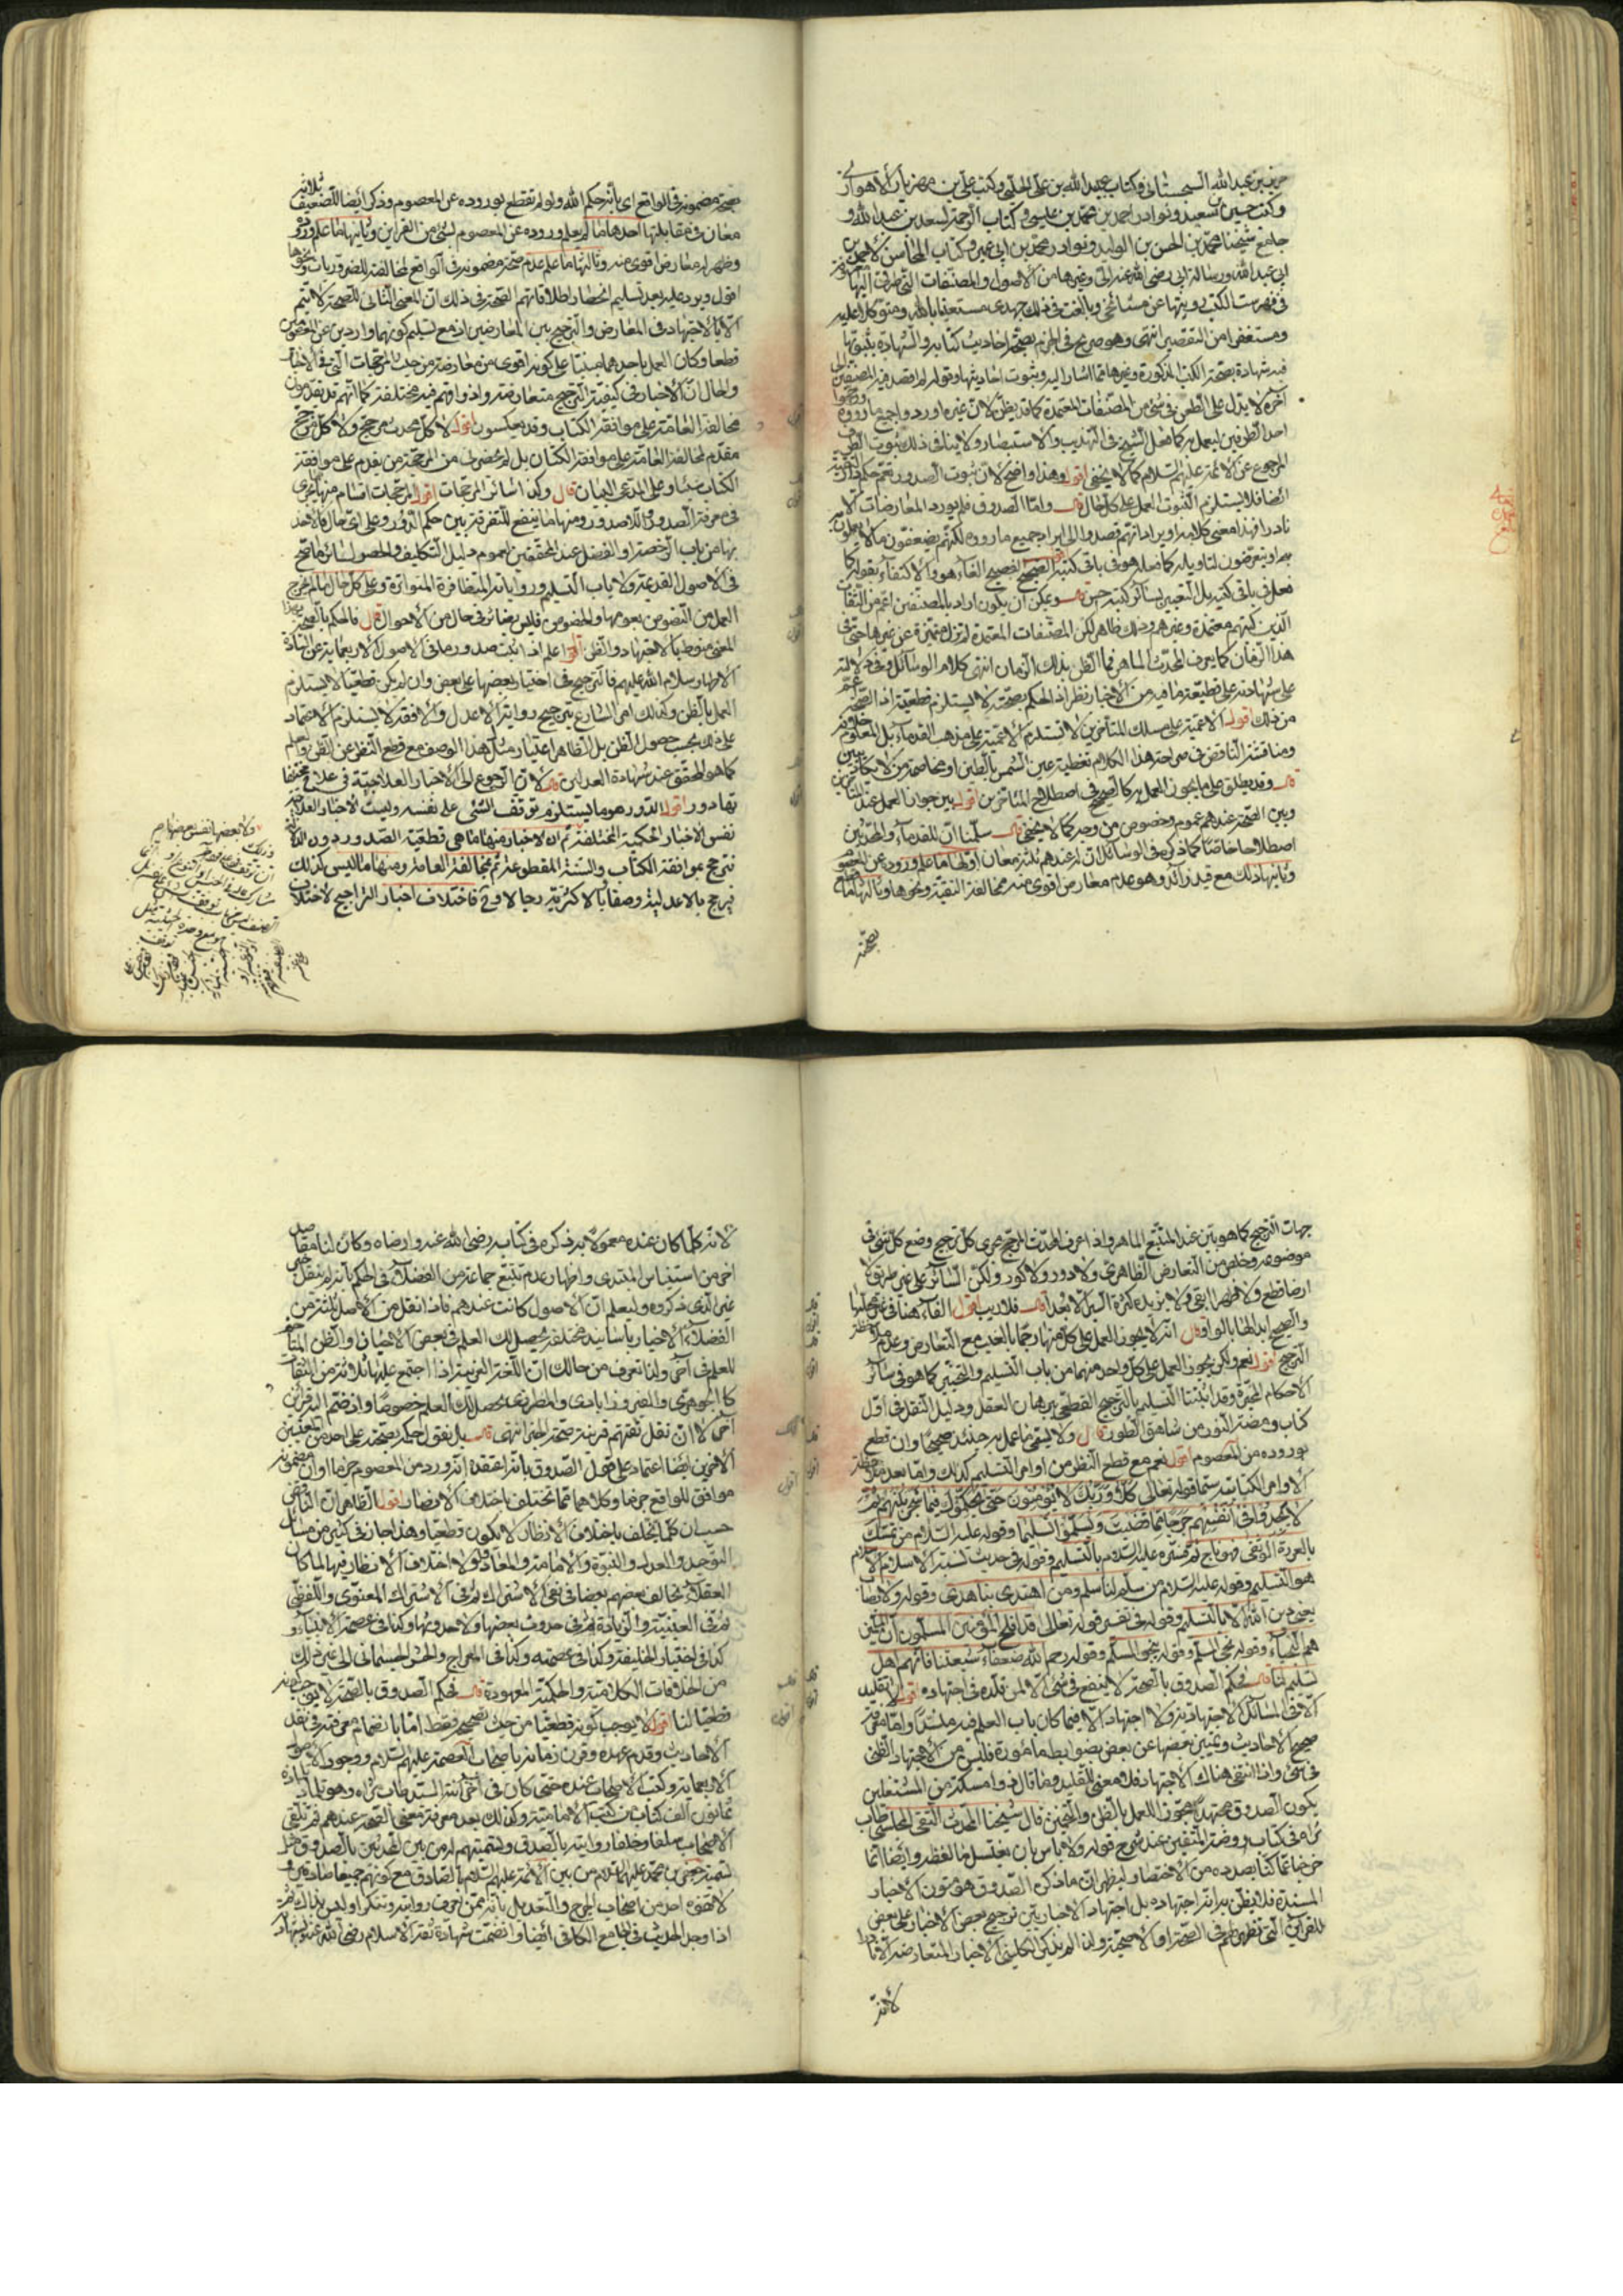 حريز بن عبد الله السجستاني وكتاب عبيد الله بن علي الحلبي وكتب علي بن مهزيار الأهوازي
وكتب حسين بن سعيد ونوادر احمد بن محمد بن عيسى وكتاب الرحمة لسعد بن عبد الله و
جامع شيخنا محمد بن الحسن بن الوليد ونوادر محمد بن ابي عمير وكتاب المحاسن لاحمد بن
ابي عبد الله ورسالة ابي رضي الله عنه الي وغيرها من الأصول والمصنفات التي طرقي اليها معروفة
في فهرست الكتب رويتها عن مشائخي وبالغت في ذلك جهدي مستعينا بالله ومتوكلا عليه
ومستغفرا من التقصير انتهى وهو صريح في الجزم بصحة احاديث كتابه والشهادة بثبوتها
فيه شهادة بصحة الكتب المذكورة وغيرها مما اشار اليه وثبوت احاديثها وقوله لم اقصد فيه قصد المصنفين الى
آخره لا يدل على الطعن في شيء من المصنفات المعتمدة كما قد يظن لان غيره اورد واجمع ما رووه ورجحوا
احد الطرفين ليعمل به كما فعل الشيخ في التهذيب والاستبصار ولا ينافي ذلك ثبوت الطرف
المرجوع عن الائمة عليهم السلام كما لا يخفى اقول وهذا واضح لان ثبوت الصدور يعم حكم ذوي التقية
ايضا فلا يستلزم الثبوت العمل على كل حال قال واما الصدوق فلم يورد المعارضات الا
نادرا فهذا معنى كلامه او يراد انهم قصدوا الى ايراد جميع ما رووه لكنهم يضعفون ما لا يعملون
به او يتعرضون لتاويله كما فعله هو في باقي كتبه اقول الصحيح الفصيح الغاء هو والاكتفاء بقوله كما
فعل في باقي كتبه بل التعبير بسائر كتبه حسن قال ويمكن ان يكون اراد بالمصنفين اعم من الثقات
الذين كتبهم معتمدة وغيرهم وذلك ظاهر لكن المصنفات المعتمدة لم تزل متميزة عن غيرها حتى في
هذا الزمان كما يعرف المحدث الماهر فما الظن بذلك الزمان انتهى كلام الوسائل وفي دلالته
على شهادته على قطيعة ما فيه من الاخبار نظر اذ الحكم بصحته لا يستلزم قطعيته اذ الصحة اعم
من ذلك اقول الاعمية على مسلك المتأخرين لا تستلزم الاعمية على مذهب القدماء بل المعلوم خلافه
ومناقشة الناقض في صراحة هذا الكلام تغطية عين الشمس بالطين او مخاصمة من لا يكاد يبين
قال وقد يطلق على ما يجوز العمل به كالصحيح في اصطلاح المتاخرين اقول بين جواز العمل عند المتأخرين
وبين الصحة عندهم عموم وخصوص من وجه كما لا يخفى قال سلمنا ان للقدماء والمحدثين
اصطلاحا خاصا كما ذكره في الوسائل ان له عندهم ثلثة معان اولها ما علم وروده عن المعصوم
وثانيها ذلك مع قيد زائد وهو عدم معارض اقوى منه مخالفة التقية ونحوها وثالثها ما قطع
بصحة
بصحة مضمونه في الواقع اى بأنه حكم الله ولو لم نقطع بوروده عن المعصوم وذكر ايضا للضعيف ثلاثة
معان في مقابلتها احدها ما لم يعلم وروده عن المعصوم بشئ من القراين وثانيها ما علم وروده
وظهر له معارض اقوى منه وثالثها ما علم عدم صحة مضمونه في الواقع لمخالفته للضروريات ونحوها
اقول ويرد عليه بعد تسليم انحصار اطلاقاتهم الصحة في ذلك ان المعنى الثانى للصحة لا يتم
الا بالاجتهاد في المعارض والترجيح بين المعارضين اذ مع تسليم كونهما واردين عن المعصوم
قطعا وكان العمل باحدهما مبتنيا على كونه اقوى من معارضه من حيث المرجحات التي في الاخبار
والحال ان الاخبار في كيفية الترجيح متعارضة واذواقهم فيه مختلفة كما انهم قد يقدمون
مخالفة العامة على موافقة الكتاب وقد يعكسون اقول لا كل محدث مرجح ولا كل مرجح
مقدم لمخالفة العامة على موافقة الكتاب بل لم نحضر من المرجحة من يقدم على موافقة
الكتاب شيئا وعلى المدعي البيان قال وكذا سائر المرجحات اقول المرجحات اقسام منها يجرى
في معرفة الصدور واللاصدور ومنها ما ينفع للتفرقة بين حكم الورود وعلى اي حال فالاخذ
بها من باب الرخصة او الفضل عند المحققين لعموم دليل التكليف والحصول لسائر ما صح
في الاصول القديمة ولا ياب التسليم وروايات المتظافرة المتواترة وعلى كل حال ما لم يخرج
العمل من النصوص بعمومها والخصوص فليس بضائر في حال من الاحوال قال فالحكم بالصحة بهذا
المعنى منوط بالاجتهاد والظن اقول اعلم اذا ثبت صدور ما في الاصول الاربعماية عن السادة
الاطهار سلام الله عليهم فالترجيح في اختيار بعضها على بعض وان لم يكن قطعيا لا يستلزم
العمل بالظن وكذلك امر الشارع بترجيح رواية الاعدل والافقه لا يستلزم الاعتماد
على ذلك بحسب حصول الظن بل الظاهر اعتبار مثل هذا الوصف مع قطع النظر عن الظن والعلم
كما هو المحقق عند شهادة العدلين قال لان الرجوع الى الاخبار العلاجية في علاج مختلفا
تها دور اقول الدور هو ما يستلزم توقف الشئ على نفسه وليست الاخبار العلاجية
نفس الاخبار الحكمية المختلفة ثم ان الاخبار منها ما هي قطعية الصدور دون الدلالة
فترجح بموافقة الكتاب والسنة المقطوعة ثم بمخالفة العامة ومنها ما ليس كذلك
فيرجح بالاعدلية وصفا بالاكثرية رجالا وفي فاختلاف اخبار التراجيح لاختلاف
جهات الترجيح كما هو بين عند المتتبع الماهر واذا عرف المحدث المرجح مجرى كل ترجيح وضع كل شئ في
موضوعه وخلص من التعارض الظاهري ولا دور ولا كور ولكن السائر على غير طريق لا
ارضا قطع ولا ظهرا ابقى ولا يزيده كثرة السير الا بعدا قال فلا ريب اقول الفاء هنا في غير محلها
والصحيح ابدالها بالواو قال انه لا يجوز العمل على كل منها رجما بالغيب مع التعارض وعدم ملاحظة
الترجيح اقول نعم ولكن يجوز العمل على كل واحد منهما من باب التسليم والتخيير كما هو في سائر
الاحكام المخيرة وقد اثبتنا التسليم بالترجيح القطعي ببرهان العقل ودليل النقل في اول
كتاب ومضة النور من شاهق الطور قال ولا يسمى ما عمل به حينئذ صحيحا وان قطع
بوروده من المعصوم اقول نعم مع قطع النظر من اوامر التسليم كذلك واما بعد ملاحظة
الاوامر الكتابية سيما قوله تعالى كلا وربك لا يؤمنون حتى يحكموك فيما شجر بينهم ثم
لا يجدوا في انفسهم حرجا مما قضيت ويسلموا تسليما وقوله عليه السلام من تمسك
بالعروة الوثقى فهو ناج ثم فسره عليه السلام بالتسليم وقوله في حديث نسبة الاسلام الاسلام
هو التسليم وقوله عليه السلام من سلم لنا سلم ومن اهتدى بنا هدى وقوله ولا ايضا
يعنى دين الله الا بالتسليم وقوله في تفسير قوله تعالى قد افلح المؤمنين المسلمون ان المسلمين
هم النجباء وقوله نحى السلم وقوله ينجو المسلم وقوله رحم الله ضعفاء شيعتنا فانهم اهل
تسليم لنا قال فحكم الصدوق بالصحة لا ينفع في شئ الا لمن قلده في اجتهاده اقول لا تقليد
الا في المسائل الاجتهادية ولا اجتهاد الا فيما كان باب العلم فيه منسدا واما معرفة
صحيح الاحاديث وتمييز بعضها عن بعض بضوابط مأثورة فليس من الاجتهاد الظني
في شئ واذا انتفى هناك الاجتهاد فلا معنى للتقليد وما قال ذوا مسكة من المشتغلين
بكون الصدوق مجتهدا مجوزا للعمل بالظن والتخمين قال شيخنا المحدث التقي المجلسي طاب
ثراه في كتاب روضة المتقين عند شرح قوله ولا باس بان يغتسل ما لفظه وايضا انما
خرضنا عما كنا بصدده من الاختصار وليظهر ان ما ذكره الصدوق هو متون الاخبار
المسندة فلا يظن به انه اجتهاده بل اجتهاد الاخباريين ترجيح بعض الاخبار على بعض
للقراين التي تظهر لهم في الصحة او الاصحية ولذا لم يذكر الكليني الاخبار المتعارضة الا نادرا
لانه
لانه كلما كان عنده معمولا به ذكره في كتابه رضى الله عنه وارضاه وكان لنا مقاصد
اخر من استيناس المبتدى واظهار عدم تتبع جماعة من الفضلاء في الحكم بأنه لم ينقل حتى
غير الذى ذكروه وليعلم ان الاصول كانت عندهم فاذا نقل من الاصل ثلثة من
الفضلاء الاخيار بأسانيد مختلفة يحصل لك العلم في بعض الاحيان والظن المتاخم
للعلم في آخر ولذا تعرف من حالك ان اللغة الغريبة اذا اجتمع عليها ثلاثة من الثقات
كالجوهرى والفيروزابادى والمطرزى يحصل لك العلم خصوصا اذا انضم اليه قراين
آخر لا ان نقل ثقتهم قرينة صحة الخبر انتهى قال بل نقول حكمه بصحته على احد من المعنيين
الاخرين ايضا اعتماد على قول الصدوق بأنه اعتقد انه ورد من المعصوم جزما وان مضمونه
موافق للواقع جزما وكلاهما مما تختلف باختلاف الانظار اقول الظاهر ان الناقض
حسب ان كلما يختلف باختلاف الانظار لا يكون قطعيا وهذا جاز في كثير من مسائل
التوحيد والعدل والنبوة والامامة والمعاد ولو لا اختلاف الانظار فيها لما كان
العقلاء يخالف بعضهم بعضا في نفي الاشتراك ثم في الاشتراك المعنوى واللفظى
ثم في العينية والزيادة ثم في حدوث بعضها ولا حدوثها وكذا في عصمة الانبياء و
كذا في اختيار الخليفة وكذا في عصمته وكذا في المعراج والحشر الجسماني الى غير ذلك
من الخلافات الكلامية والحكمية المعهودة قال فحكم الصدوق بالصحة لا يوجب كونه
قطعيا لنا اقول لا يوجب كونه قطعيا من حيث تصحيحه فقط اما بانضمام معرفته في نقد
الاحاديث وقدم عهده وقرب زمانه باصحاب العصمة عليهم السلام ووجود الاصول
الاربعماية وكتب الاصحاب عنده حتى كان في خزانة السيد طاب ثراه وهو تلميذه
ثمانون الف كتاب من كتب الامامية وكذلك بعد معرفته معنى الصحة عندهم ثم تلقى
الاصحاب سلفا وخلفا رواياته بالصدق وتسميتهم له من بين المحدثين بالصدوق مثل
تسمية جعفر بن محمد عليهما السلام من بين الائمة عليهم السلام بالصادق مع كونهم جميعا صادقين و
لا تفوه احد من اصحاب الجرح والتعديل بأنه ممن تعرف روايته وتنكر او ليس بذاك ثم
اذا وجد الحديث في الجامع الكافي ايضا وانضمت شهادة ثقة الاسلام رضى الله عنه لشهادته